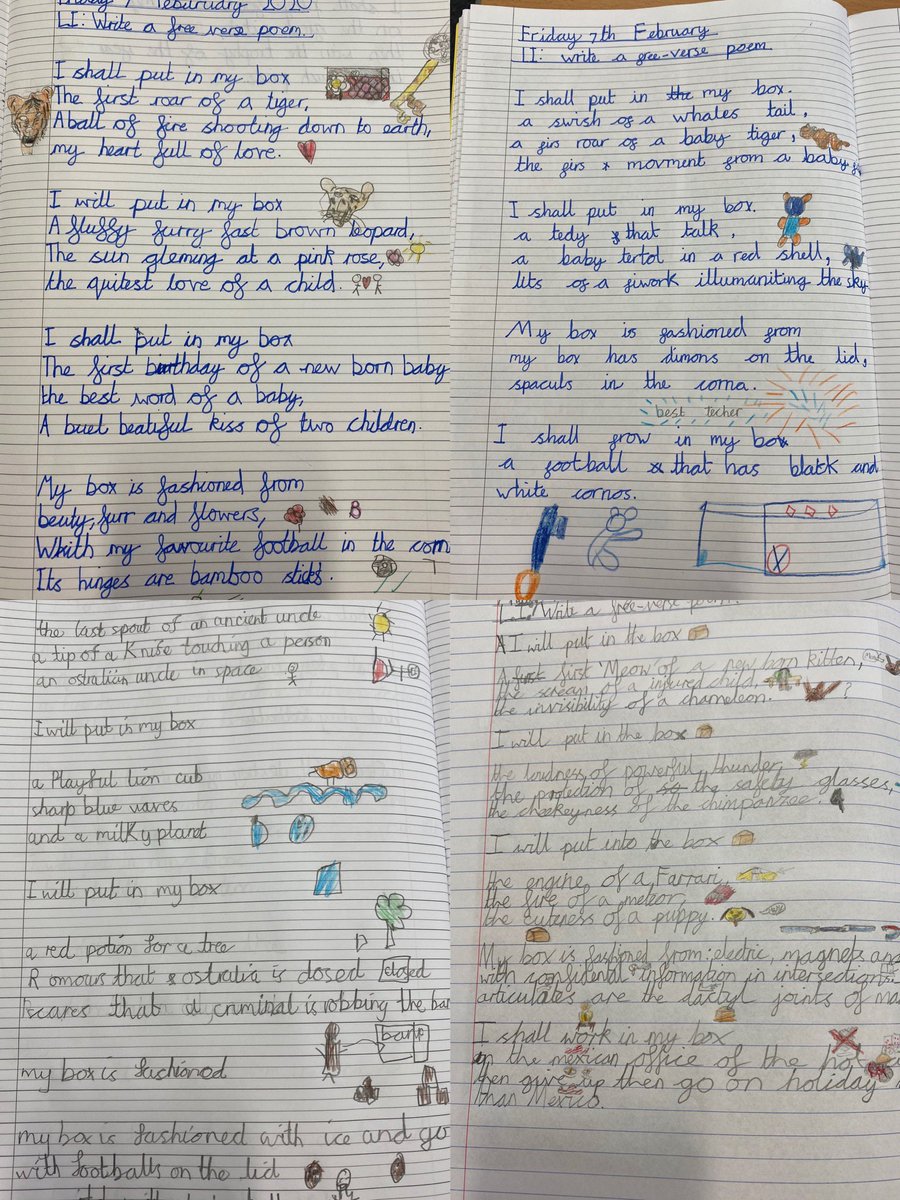 Friday 7 Februrary 2020
LI: Write a free verse poem.
I shall put in my box
The first roar of a tiger,
A ball of fire shooting down to earth,
my heart full of love.
I will put in my box
A fluffy furry fast brown leopard,
The sun gleming at a pink rose,
the quitest love of a child.
I shall put in my box
The first birthday of a new born baby
the best word of a baby,
A buet beatiful kiss of two children.
My box is fashioned from
beuty, furr and flowers,
Whith my favourite football in the corn
Its hinges are bamboo sticks.
Friday 7th February
LI: write a free-verse poem
I shall put in the my box.
a swish of a whales tail,
a firs roar of a baby tiger,
the firs movment from a baby
I shall put in my box.
a tedy that talk,
a baby tertol in a red shell,
lits of a fiwork illumaniting the sky
My box is fashioned from
my box has dimons on the lid,
spaculs in the corna.
best techer
I shall grow in my box
a football that has blatk and
white cornos.
the last spout of an ancient uncle
a tip of a Knife touching a person
an ostralian uncle in space
I will put in my box
a Playful lion cub
sharp blue waves
and a milky plant
I will put in my box
a red potion for a tree
Romours that ostralia is closed
closed
scares that a criminal is robbing the ban
bank
my box is fashioned
my box is fashioned with ice and go
with footballs on the lid
LI: Write a free-verse poem.
I will put in the box
A first first 'Meow' of a new born kitten,
the scream of a injured child,
the invisibility of a chameleon.
?
I will put in the box
the loudness of powerful thunder,
the protection of so the safety glasses,
the cheekyness of the chimpanzee.
I will put into the box
the engine of a Farrari,
the fire of a meteor,
the cuteness of a puppy.
My box is fashioned from: electric, magnets and
with confidental information in intersection
articulates are the dactyl joints of ma
I shall work in my box
in the mexican office of the hot
then give up then go on holiday
than Mexico.